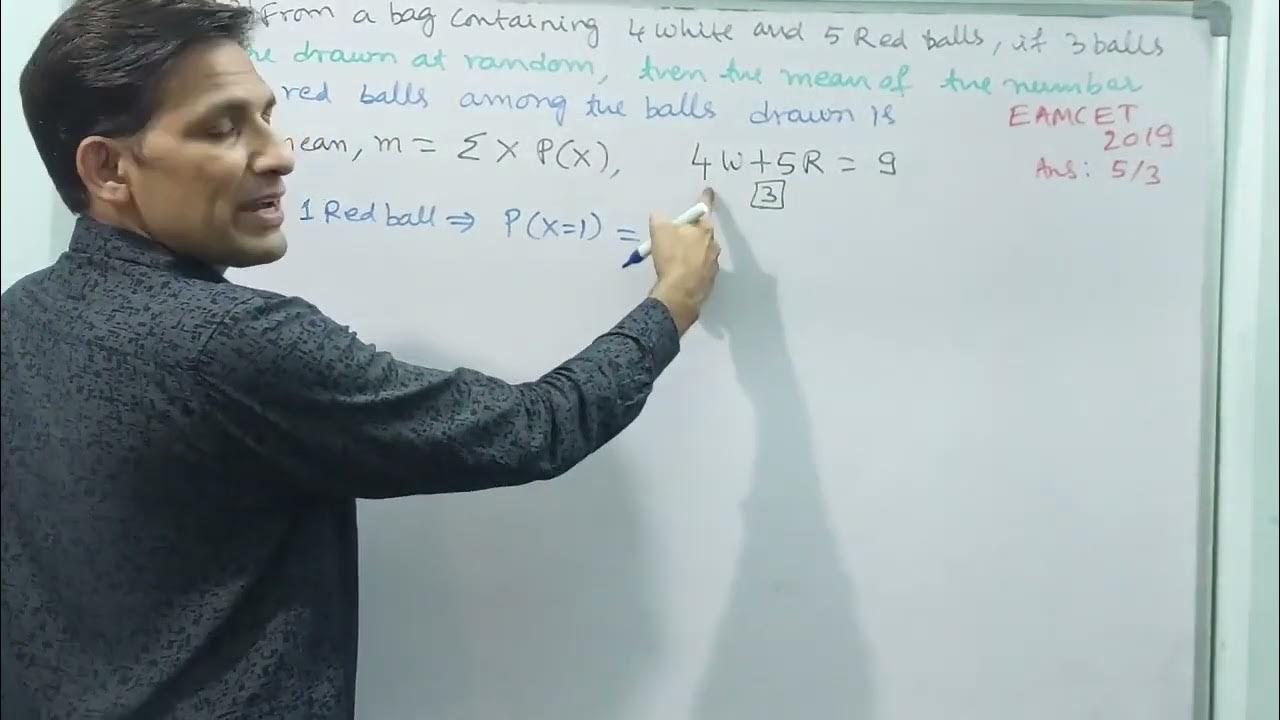 From a bag containing 4 white and 5 Red balls, if 3 balls
drawn at random, then the mean of the number
red balls among the balls drawn is
EAMCET
2019
Ans: 5/3
m = Σ X P(X), 4W+5R = 9
3
1 Red ball ⇒ P(X=1) =